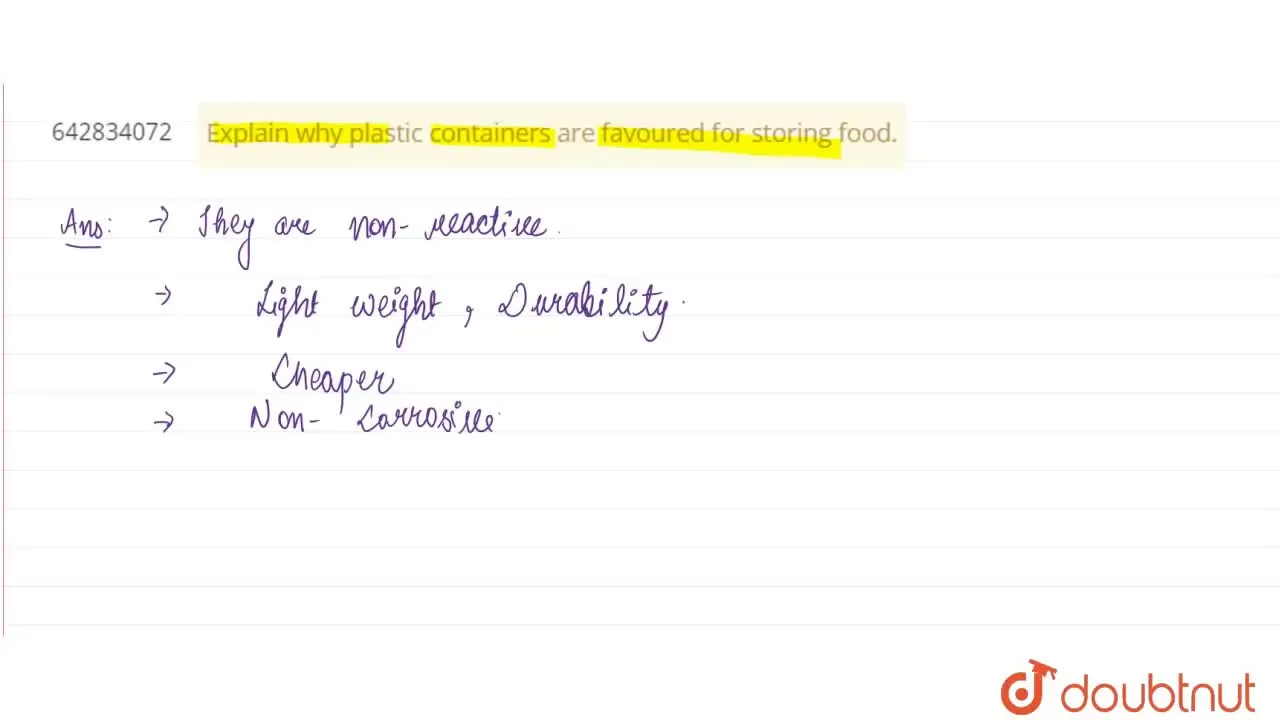 642834072 Explain why plastic containers are favoured for storing food.
Ans: → They are non-reactive.
→ Light weight, Durability.
→ Cheaper
→ Non-Corrosive
doubtnut